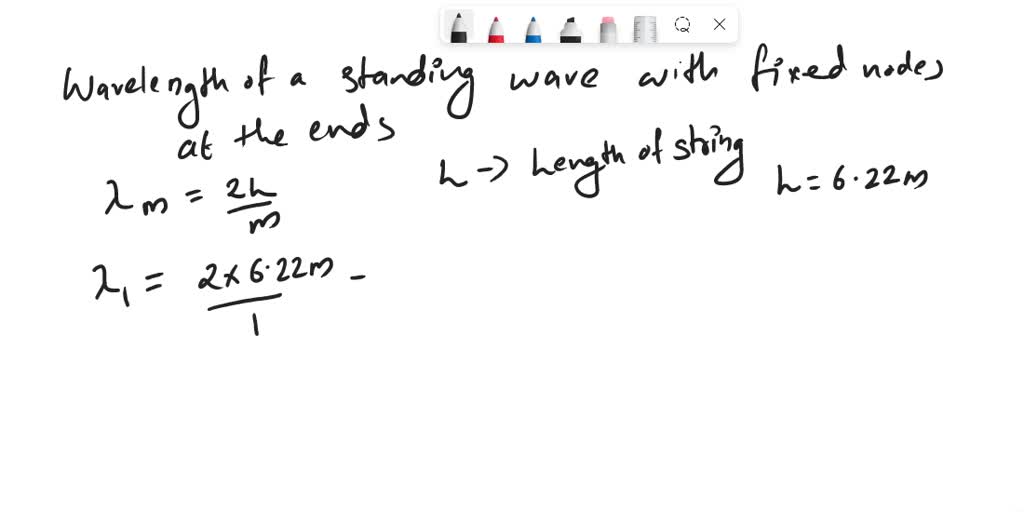 Wavelength of a standing wave with fixed nodes
at the ends
L → Length of string L = 6.22m
λm = 2L/m
λ1 = 2 x 6.22m / 1 =